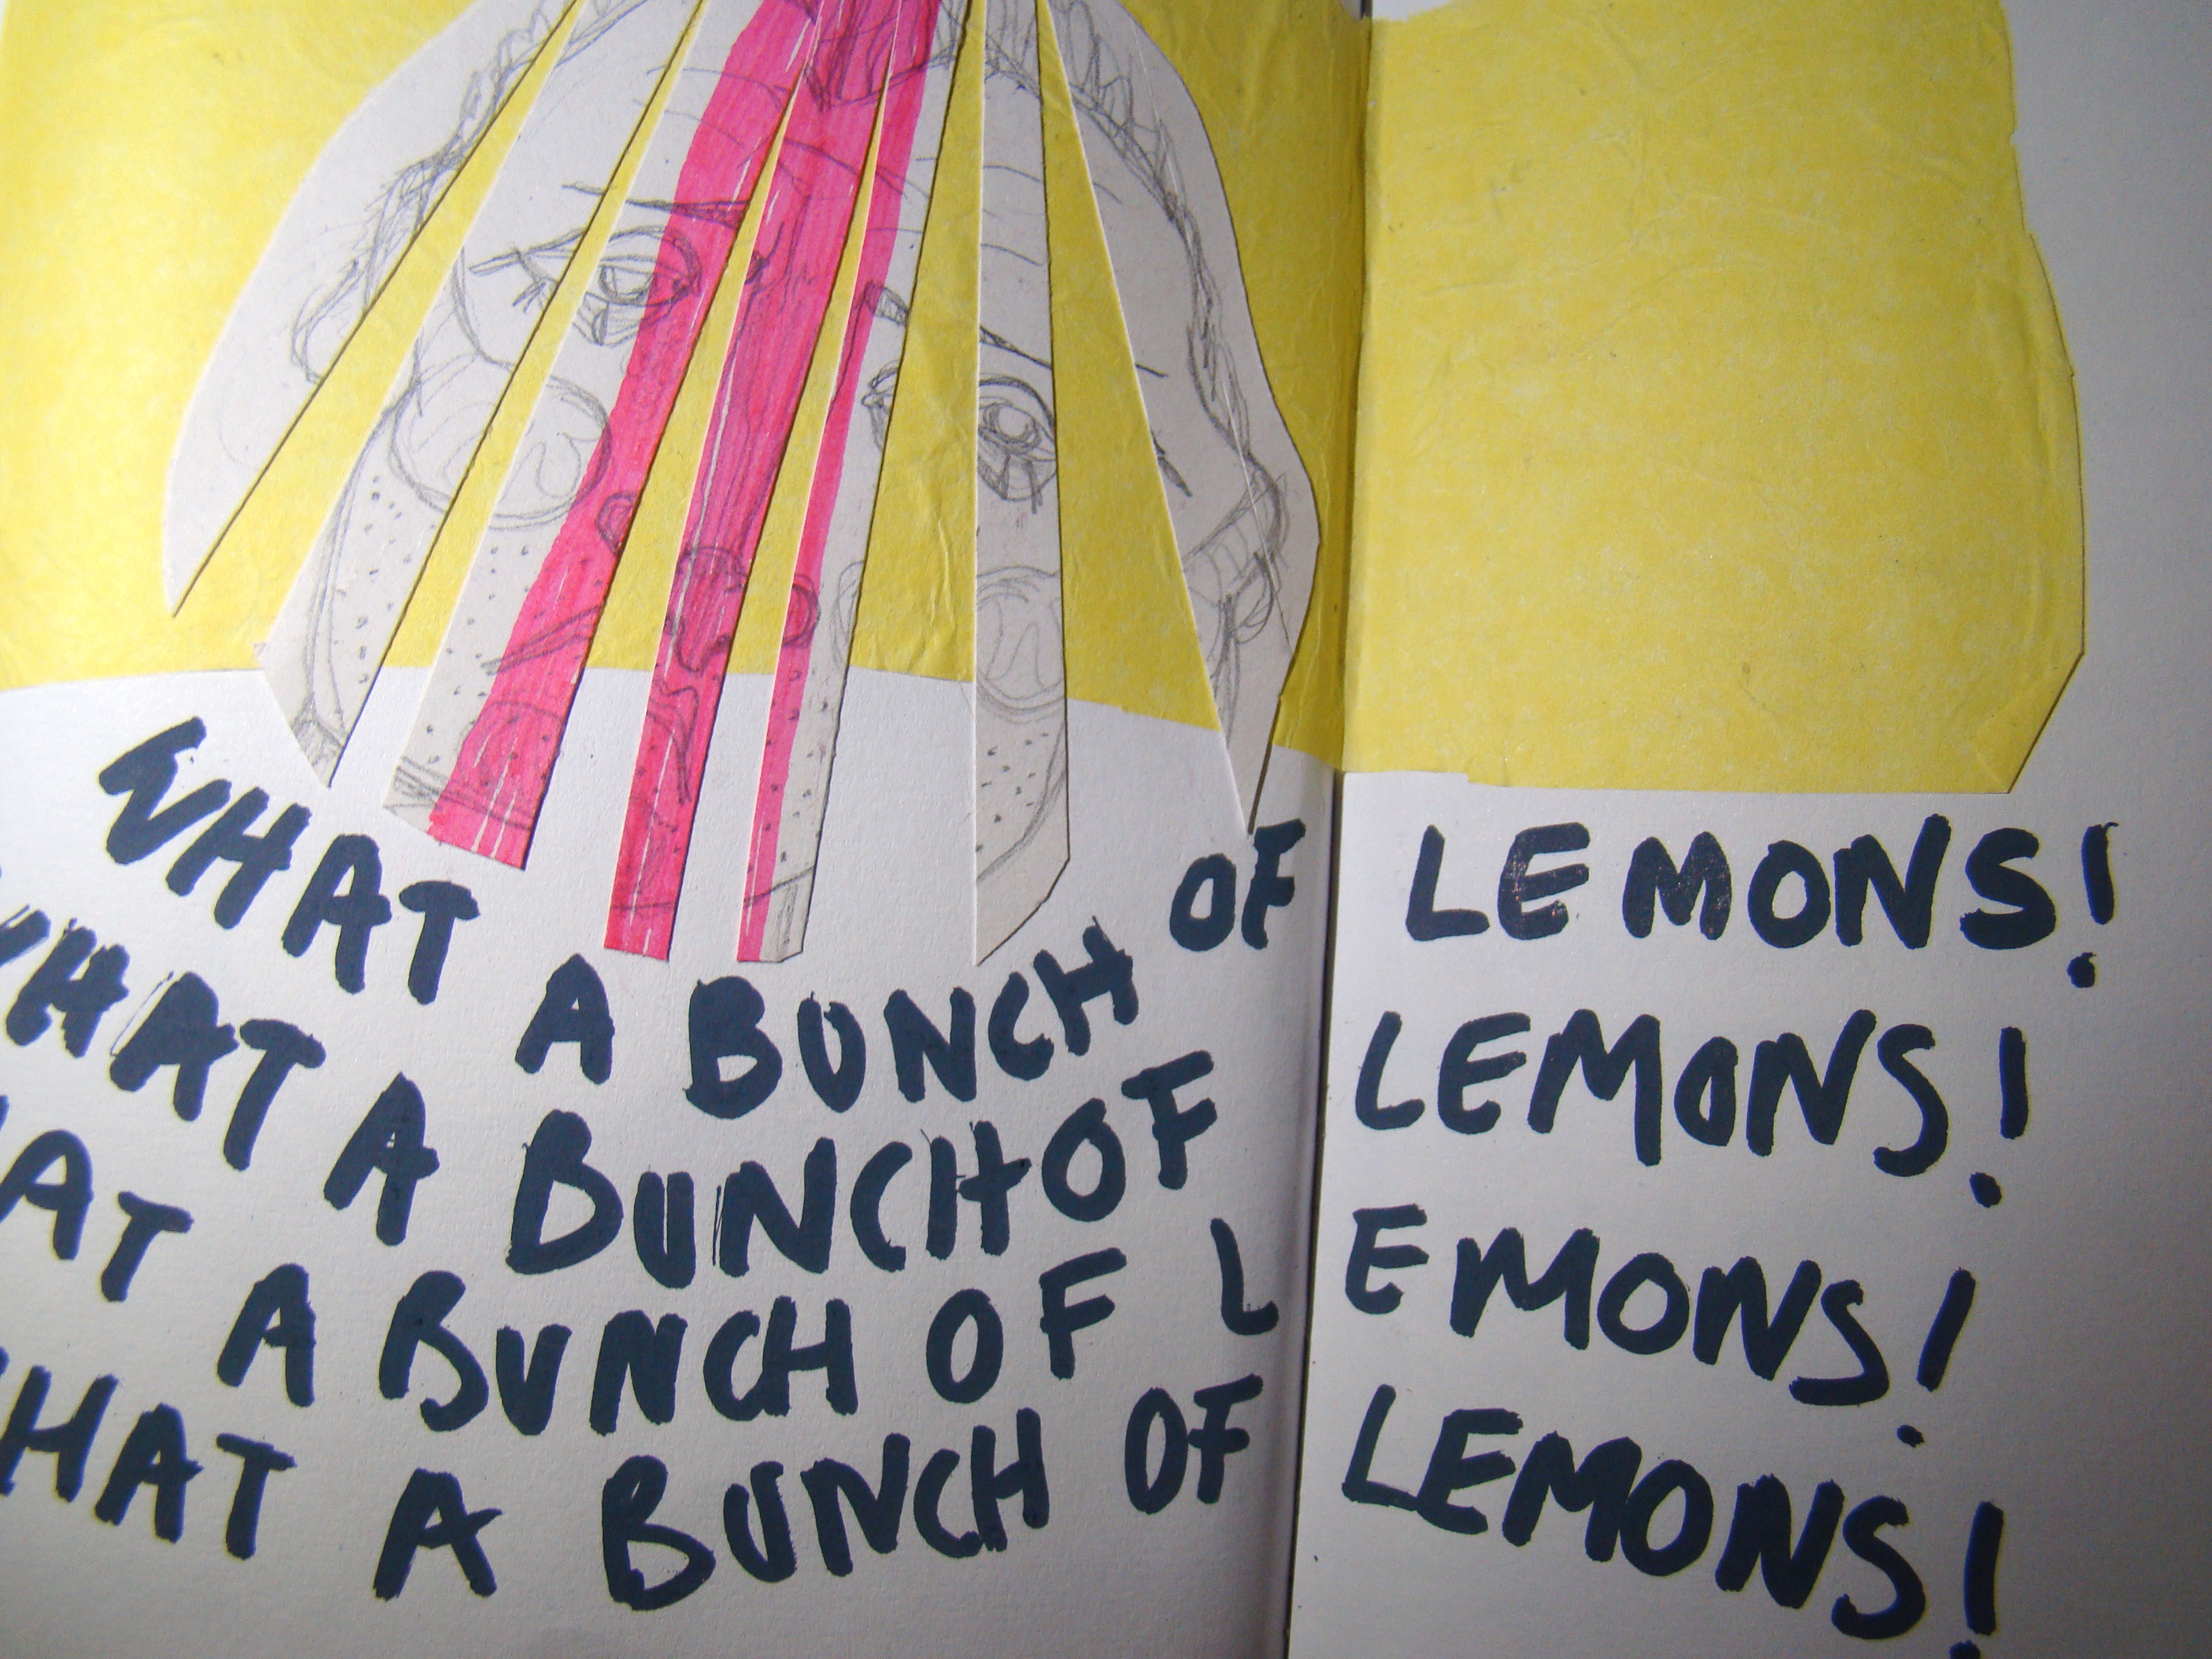 WHAT A BUNCH OF LEMONS!
WHAT A BUNCH OF LEMONS!
HAT A BUNCH OF LEMONS!
WHAT A BUNCH OF LEMONS!